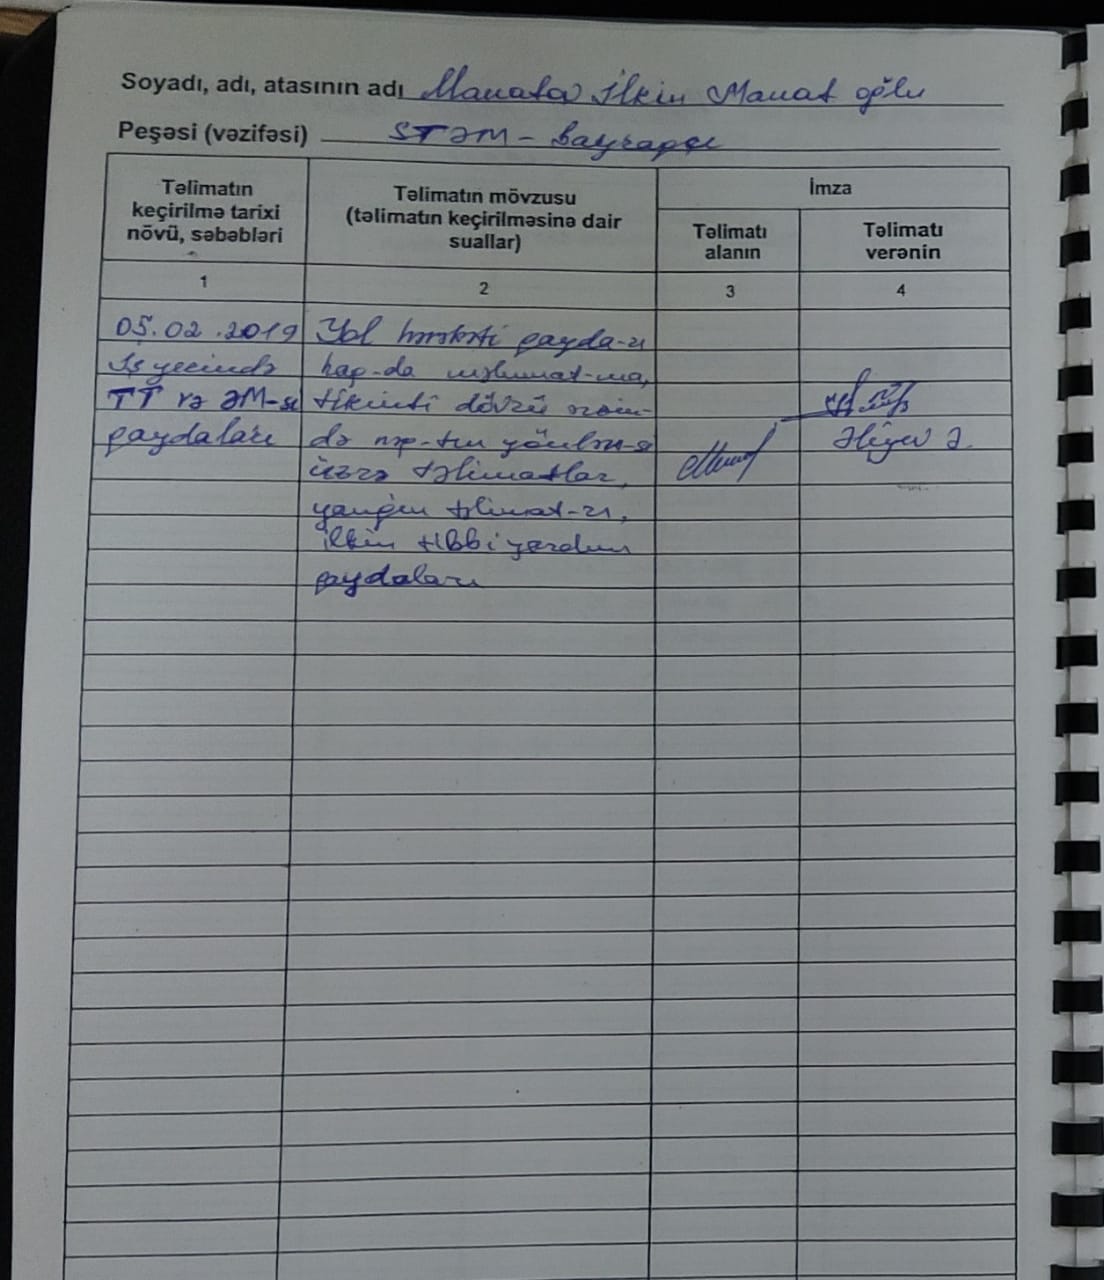 Soyadı, adı, atasının adı Manatov İlkin Manat oğlu
Peşəsi (vəzifəsi) STƏM - Bayraqçı
Təlimatın keçirilmə tarixi növü, səbəbləri
Təlimatın mövzusu (təlimatın keçirilməsinə dair suallar)
İmza
Təlimatı alanın
Təlimatı verənin
1 2 3 4
05.02.2019 Yol hərəkəti qayda-rı
İş yerində haq-da məlumat-ma,
TT və ƏM-si tikinti dövrü
qaydaları də
Əliyev Ə.
üzrə təlimatlar,
yanğın təlimat-rı,
ilkin tibbi yardım
qaydaları